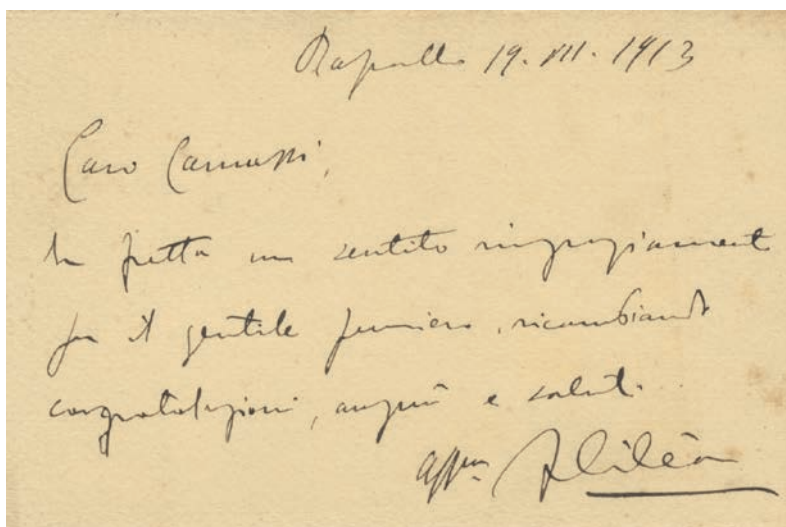 Rapallo 19. VII. 1913
Caro Carmassi,
In fretta un sentito ringraziamento
per il gentile pensiero, ricambiando
congratulazioni, auguri e saluti.
aff.mo FCilèa